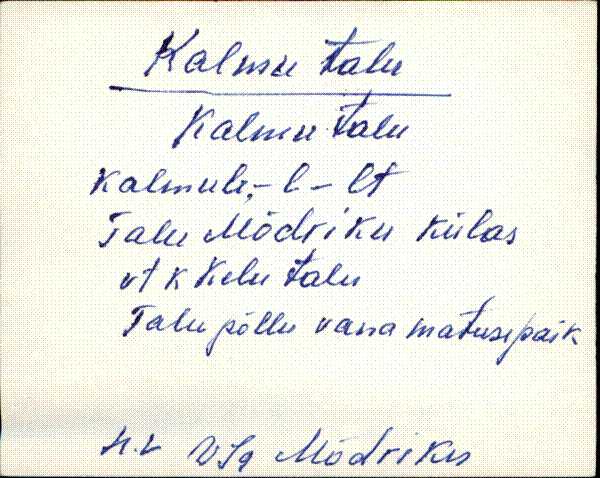 Kalmu talu
Kalmu talu
Kalmule, - l - lt
Talu Mõdriku külas
vt k Kelu talu
Talu põllu vana matusepaik
Mõdriku